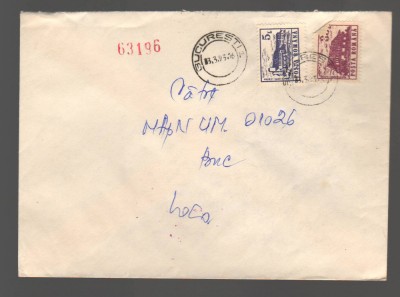 63196
BUCUREȘTI
5L
POSTA ROMANA
POSTA ROMANA
Către
MApN UM. 01026
Buc
Loco